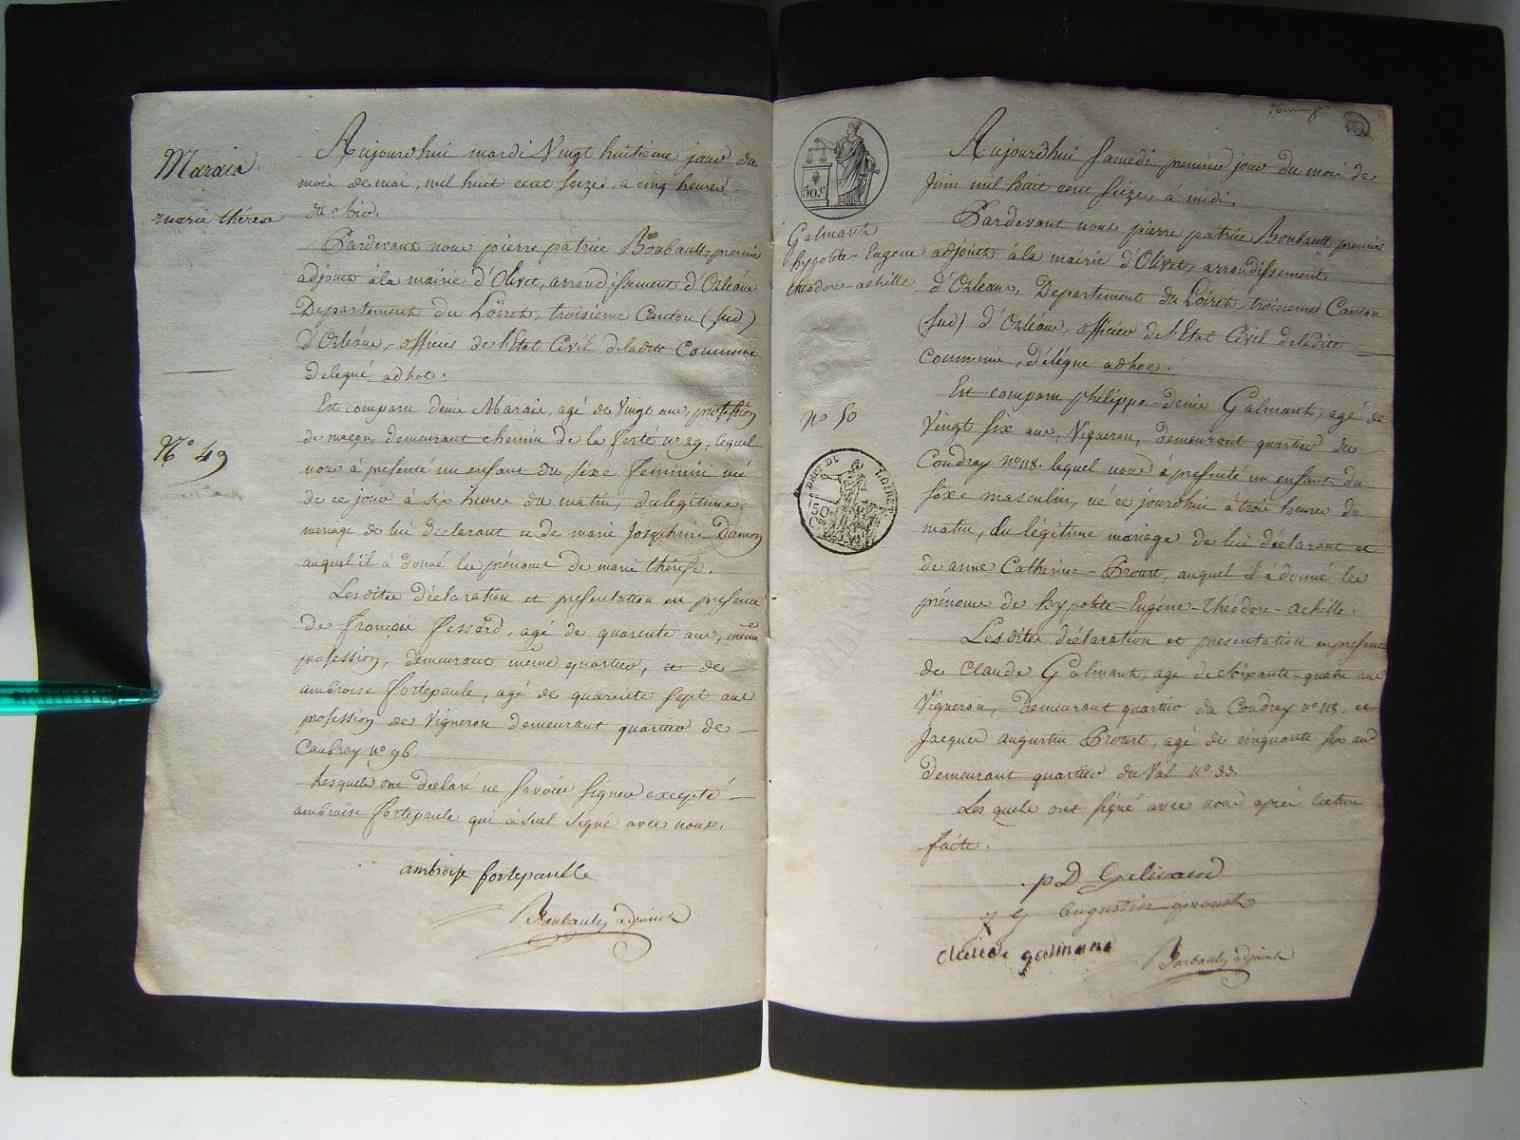 Marais
marie thérèse
N° 49
Aujourdhui mardi Vingt huitieme jour du
mois de mai, mil huit cent Seize, à cinq heures
du Soir.
Pardevant nous pierre patrice Boubault, premier
adjoint à la mairie d'Olivet, arrondissement d'Orléans
Département du Loiret, troisième Canton (Sud)
d'Orléans, officier de l'Etat Civil deladite Commune
delegué adhoc.
Est comparu denis Marais, agé de Vingt ans, profession
de maçon, demeurant chemin de la ferté n° 29, lequel
nous à présenté un enfant du sexe feminin né
de ce jour à six heures du matin, du légitime
mariage de lui declarant et de marie Josephine Damon
auquel il à donné les prénoms de marie thérèse.
Lesdites déclaration et présentation en presence
de françois fessard, agé de quarente ans, même
profession, demeurant même quartier, et de
ambroise fortepaule, agé de quarente sept ans
profession de Vigneron demeurant quartier de
Caubray n° 96
Lesquels ont déclaré ne Savoir Signer excepté
ambroise fortepaule qui à seul signé avec nous.
ambroise fortepaulle
Boubault adjoint
50.c
Galmant
hypolite-Eugene
theodore-achille
N° 50
DEPT DU LOIRET
50
Aujourdhui Samedi premier jour du mois de
Juin mil huit cent Seize, à midi.
Pardevant nous pierre patrice Boubault premier
adjoint à la mairie d'Olivet, arrondissement
d'Orléans, Département du Loiret, troisieme Canton
(Sud) d'Orléans, officier de l'Etat Civil deladite
Commune, délégué adhoc.
Est comparu philippe-denis Galmant, agé de
Vingt six ans, Vigneron, demeurant quartier du
Coudray n° 118. lequel nous à présenté un enfant du
sexe masculin, né ce jourdhui à trois heures du
matin, du légitime mariage de lui déclarant et
de anne Catherine Proust, auquel il à donné les
prénoms de hypolite-Eugène-Theodore-achille.
Lesdites déclaration et présentation en presence
de Claude Galmant, agé de Soixante-quatre ans
Vigneron, demeurant quartier du Coudray n° 118. et
Jacques augustin Proust, agé de cinquante six ans
demeurant quartier du Val n° 33.
Les quels ont signé avec nous après lecture
faite.
p D Galmant
augustin proust
claude galmant
Boubault adjoint